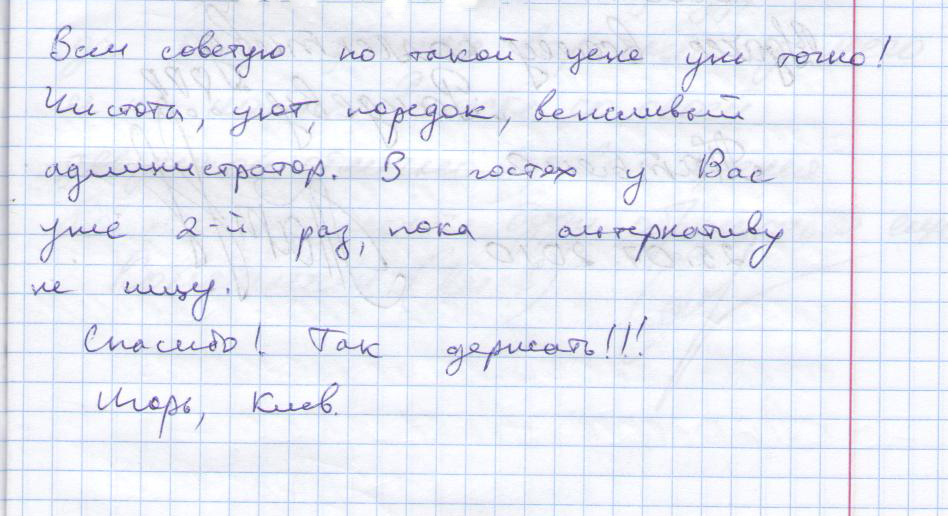 Всем советую по такой цене уж точно!
Чистота, уют, порядок, вежливый
администратор. В гостях у Вас
уже 2-й раз, пока антернативу
не ищу.
Спасибо! Так держать!!!
Игорь, Киев.